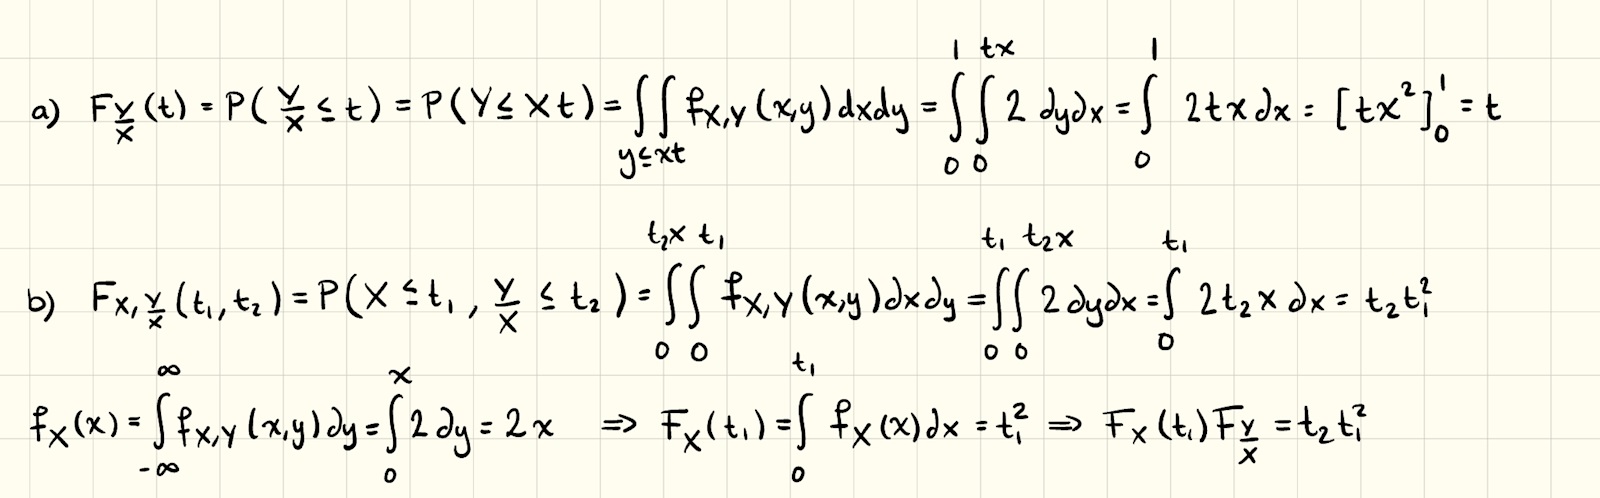 a) F_{Y/X}(t) = P(Y/X ≤ t) = P(Y ≤ Xt) = ∫∫_{y≤xt} f_{X,Y}(x,y)dxdy = ∫_0^1 ∫_0^{tx} 2 dydx = ∫_0^1 2tx dx = [tx²]_0^1 = t
b) F_{X,Y/X}(t₁,t₂) = P(X ≤ t₁, Y/X ≤ t₂) = ∫_0^{t₂x} ∫_0^{t₁} f_{X,Y}(x,y)dxdy = ∫_0^{t₁} ∫_0^{t₂x} 2 dydx = ∫_0^{t₁} 2t₂x dx = t₂t₁²
f_X(x) = ∫_{-∞}^{∞} f_{X,Y}(x,y)dy = ∫_0^x 2 dy = 2x ⇒ F_X(t₁) = ∫_0^{t₁} f_X(x)dx = t₁² ⇒ F_X(t₁)F_{Y/X} = t₂t₁²